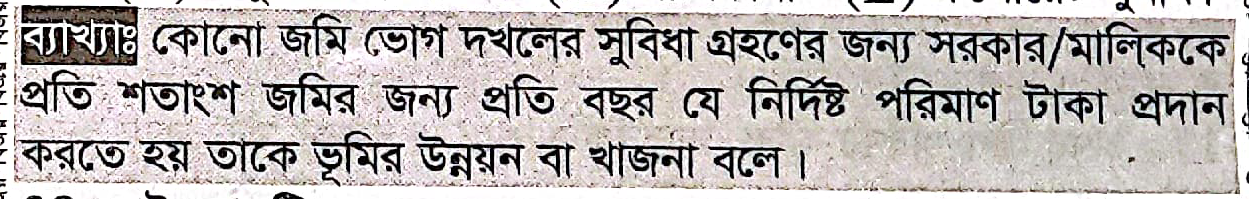 ব্যাখ্যাঃ কোনো জমি ভোগ দখলের সুবিধা গ্রহণের জন্য সরকার/মালিককে
প্রতি শতাংশ জমির জন্য প্রতি বছর যে নির্দিষ্ট পরিমাণ টাকা প্রদান
করতে হয় তাকে ভূমির উন্নয়ন বা খাজনা বলে।